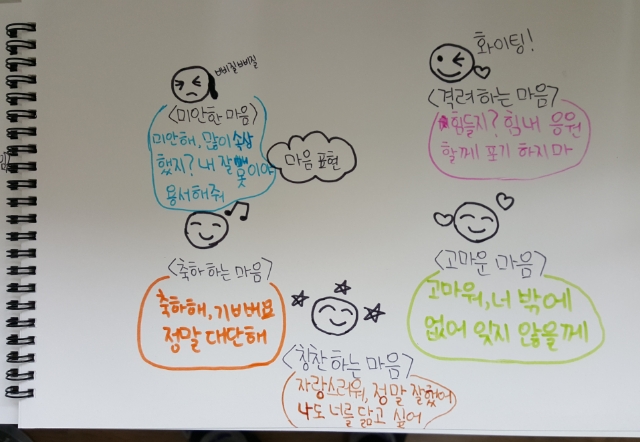 삐질삐질
<미안한 마음>
미안해, 많이 속상
했지? 내 잘못이야
용서해줘
마음 표현
화이팅!
<격려하는 마음>
힘들지? 힘내 응원
할께 포기 하지마
<축하하는 마음>
축하해, 기뻐
정말 대단해
<고마운 마음>
고마워, 너 밖에
없어 잊지 않을께
<칭찬하는 마음>
자랑스러워, 정말 잘했어
나도 너를 닮고 싶어